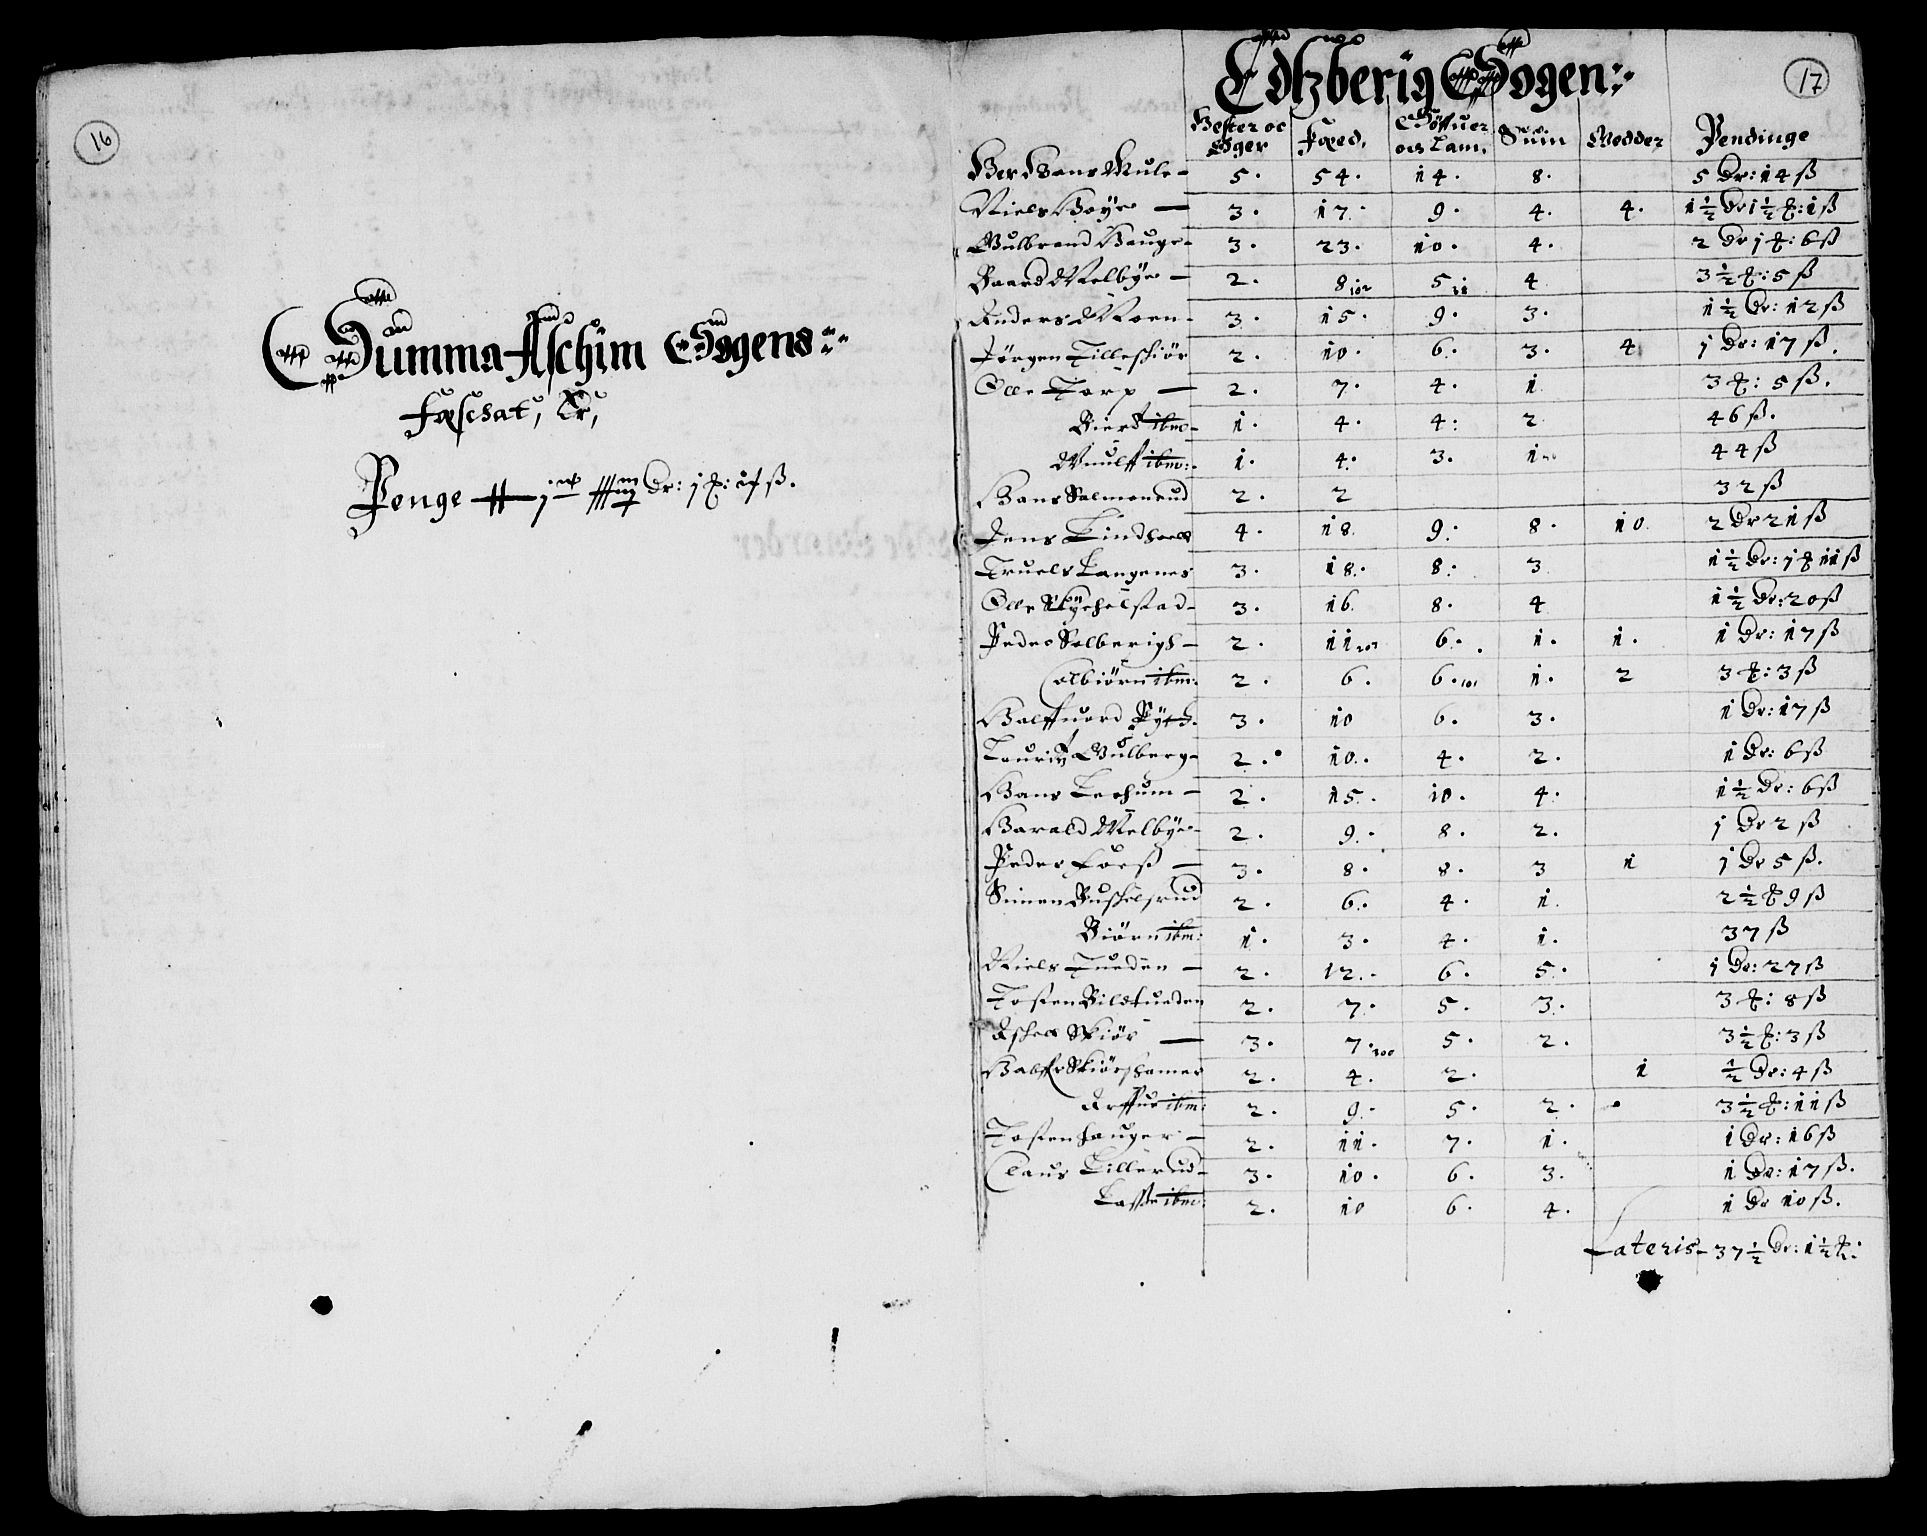 16
Summa Aschim Sogens
Fæschat, Er,
Penge
17
Edtzberig Sogen
Hester oc Øger Fæed, Søffuer och Lam, Suin Gedder Pendinge
Her Hans Mule 5 54 14 8 5 Dr: 14 ß
Niels Høye 3 17 9 4 4 1½ Dr 1½ ꝶ: 1 ß
Gulbrand Hauge 3 23 10 4 2 Dr 1 ꝶ: 6 ß
Baard Melbye 2 8 5 4 3½ ꝶ: 5 ß
Anders Moen 3 15 9 3 1½ Dr: 12 ß
Jørgen Tilleshiør 2 10 6 3 4 1 Dr: 17 ß.
Olle Torp 2 7 4 1 3 ꝶ: 5 ß.
ibm 1 4 4 2 46 ß.
ibm: 1 4 3 1 44 ß
Hans Salmonrud 2 2 32 ß
Jens Lindhoell 4 18 9 8 10 2 Dr 21 ß
Truels Langenes 3 18 8 3 1½ Dr: 1 ꝶ 11 ß
Olle Skychelstad 3 16 8 4 1½ Dr: 20 ß
Peder Solberigh 2 11 6 1 1 1 Dr: 17 ß
Colbiørn ibm: 2 6 6 1 2 3 ꝶ: 3 ß
Halffuord 3 10 6 3 1 Dr: 17 ß
Lauritz Gulberg 2 10 4 2 1 Dr: 6 ß
Hans Lechum 2 15 10 4 1½ Dr: 6 ß
Harald Melbye 2 9 8 2 1 Dr 2 ß
Peder Foess 3 8 8 3 1 1 Dr 5 ß.
Simen 2 6 4 1 2½ ꝶ 9 ß
Biørn ibm: 1 3 4 1 37 ß
Niels Tueden 2 12 6 5 1 Dr: 27 ß
Tosten Bildtueden 2 7 5 3 3 ꝶ: 8 ß
Askell Skiør 3 7 5 2 3½ ꝶ: 3 ß
Halffr Skiørshamer 2 4 2 1 ½ Dr: 4 ß
ibm: 2 9 5 2 3½ ꝶ: 11 ß
Tosten Hauger 2 11 7 1 1 Dr: 16 ß
Claus Lillerud 3 10 6 3 1 Dr: 17 ß.
Lasse ibm: 2 10 6 4 1 Dr 10 ß.
Lateris 37½ Dr: 1½ ꝶ: